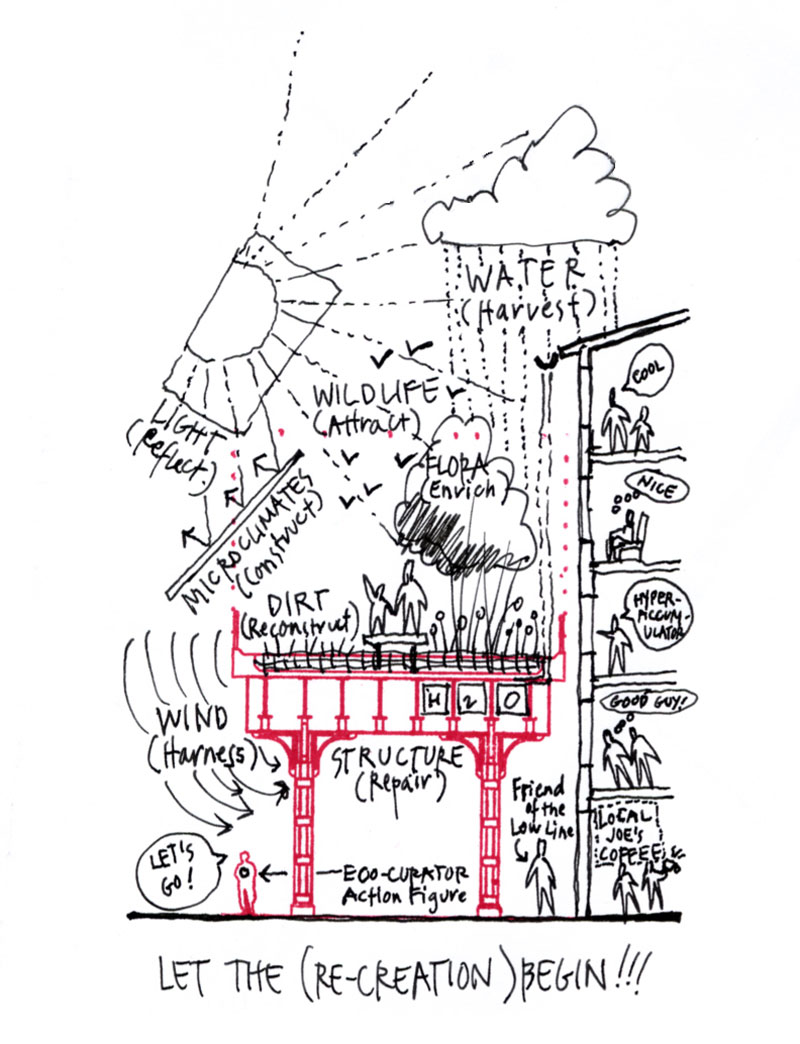 WATER
(Harvest)
COOL
WILDLIFE
(Attract)
LIGHT
(Reflect)
FLORA
Enrich
NICE
MICROCLIMATES
(Construct)
DIRT
(Reconstruct)
HYPER-
ACCUM-
ULATOR
H 2 O
GOOD GUY!
WIND
(Harness)
STRUCTURE
(Repair)
Friend
of the
Low Line
LOCAL
JOE'S
COFFEE
LET'S
GO!
ECO-CURATOR
Action Figure
LET THE (RE-CREATION) BEGIN!!!